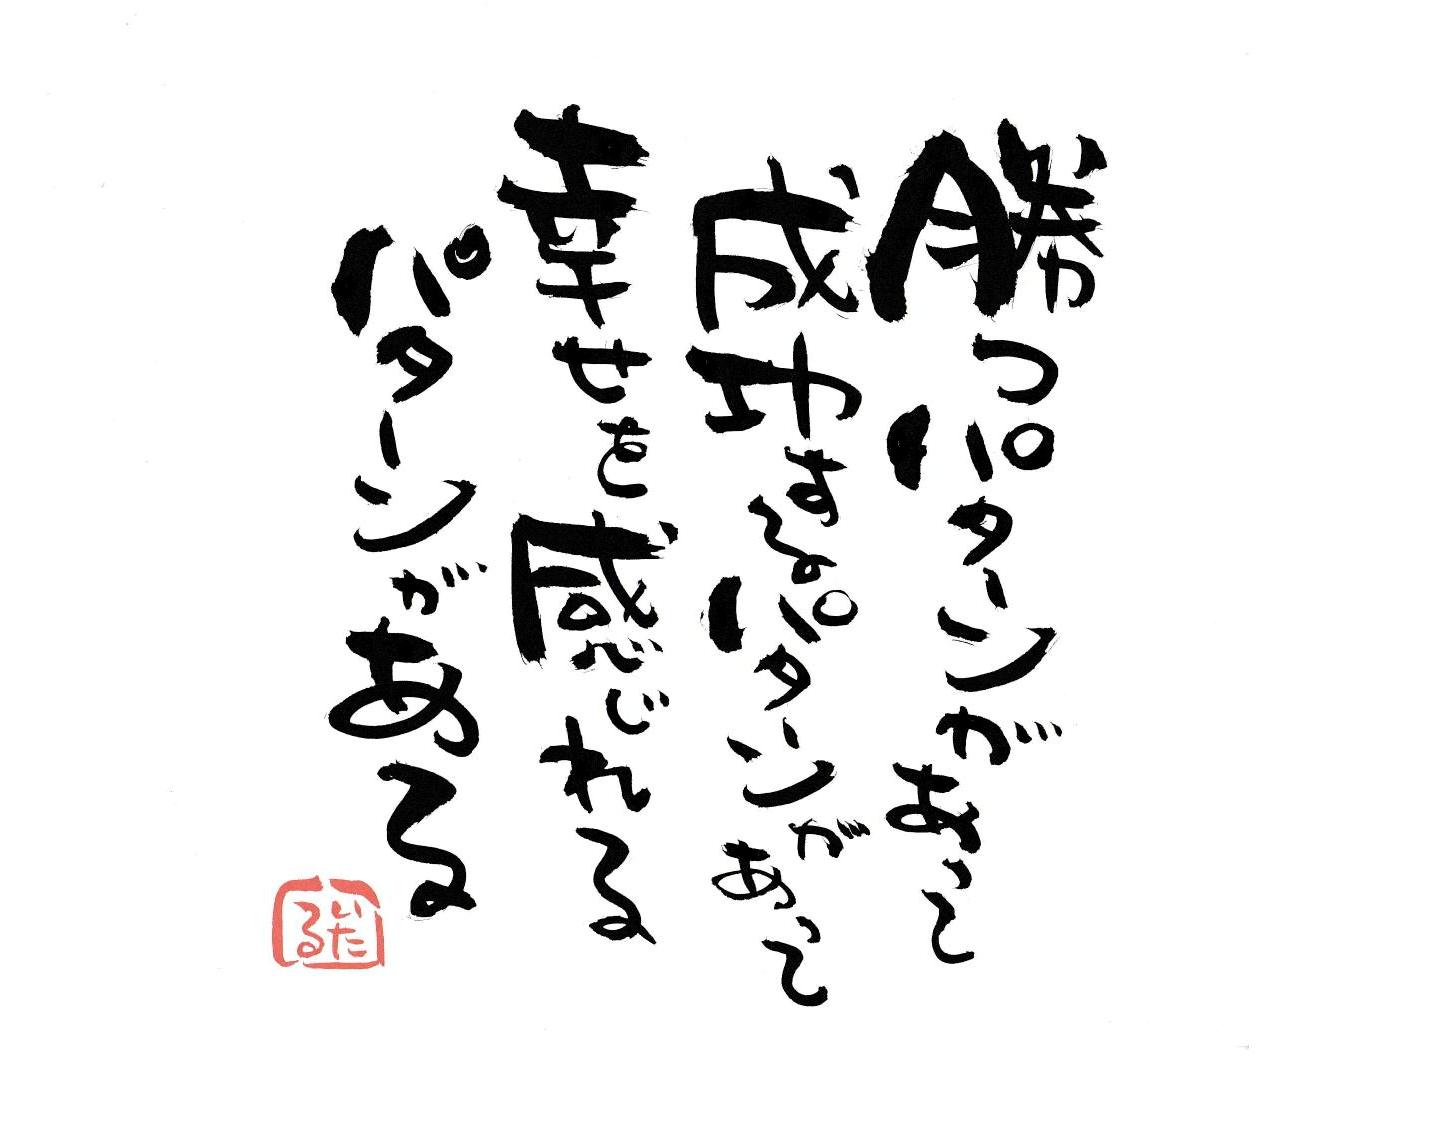 勝つパターンがあって
成功するパターンがあって
幸せを感じれる
パターンがある
いたる